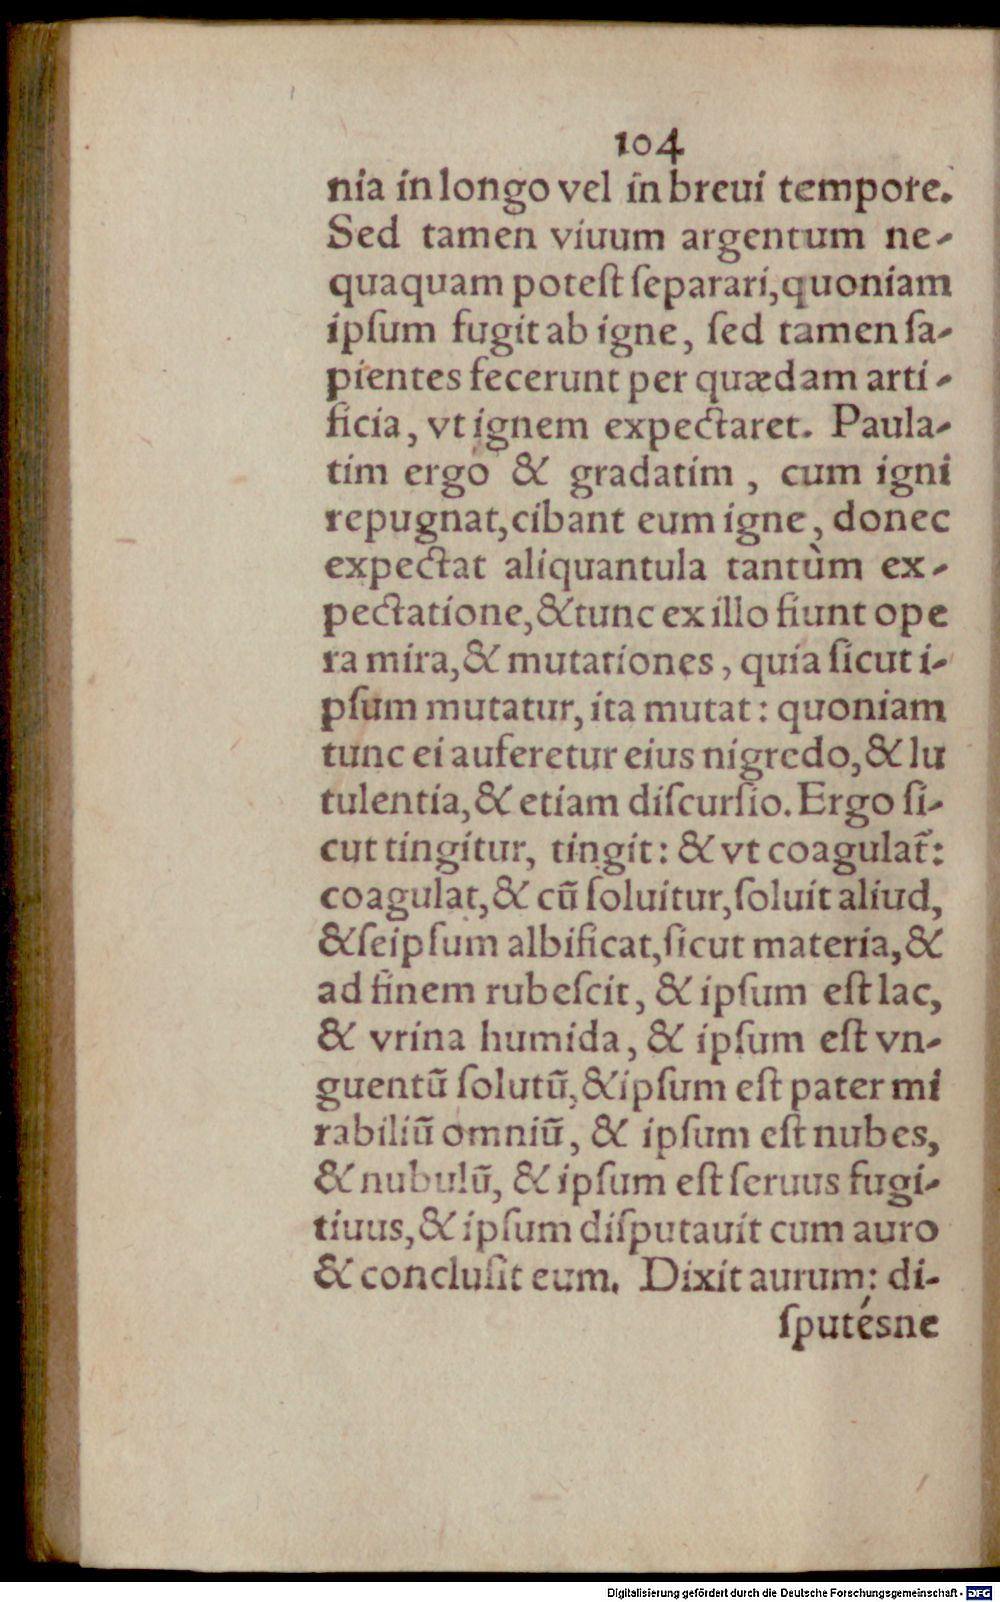 104
nia in longo vel in breui tempore.
Sed tamen viuum argentum ne-
quaquam potest separari, quoniam
ipsum fugit ab igne, sed tamen sa-
pientes fecerunt per quædam arti-
ficia, vt ignem expectaret. Paula-
tim ergo & gradatim, cum igni
repugnat, cibant eum igne, donec
expectat aliquantula tantùm ex-
pectatione, & tunc ex illo fiunt ope
ra mira, & mutationes, quia sicut i-
psum mutatur, ita mutat: quoniam
tunc ei auferetur eius nigredo, & lu
tulentia, & etiam discursio. Ergo si-
cut tingitur, tingit: & vt coagulat̃:
coagulat, & cũ soluitur, soluit aliud,
& seipsum albificat, sicut materia, &
ad finem rubescit, & ipsum est lac,
& vrina humida, & ipsum est vn-
guentũ solutũ, & ipsum est pater mi
rabiliũ omniũ, & ipsum est nubes,
& nubulũ, & ipsum est seruus fugi-
tiuus, & ipsum disputauit cum auro
& conclusit eum. Dixit aurum: di-
sputésne
Digitalisierung gefördert durch die Deutsche Forschungsgemeinschaft - DFG